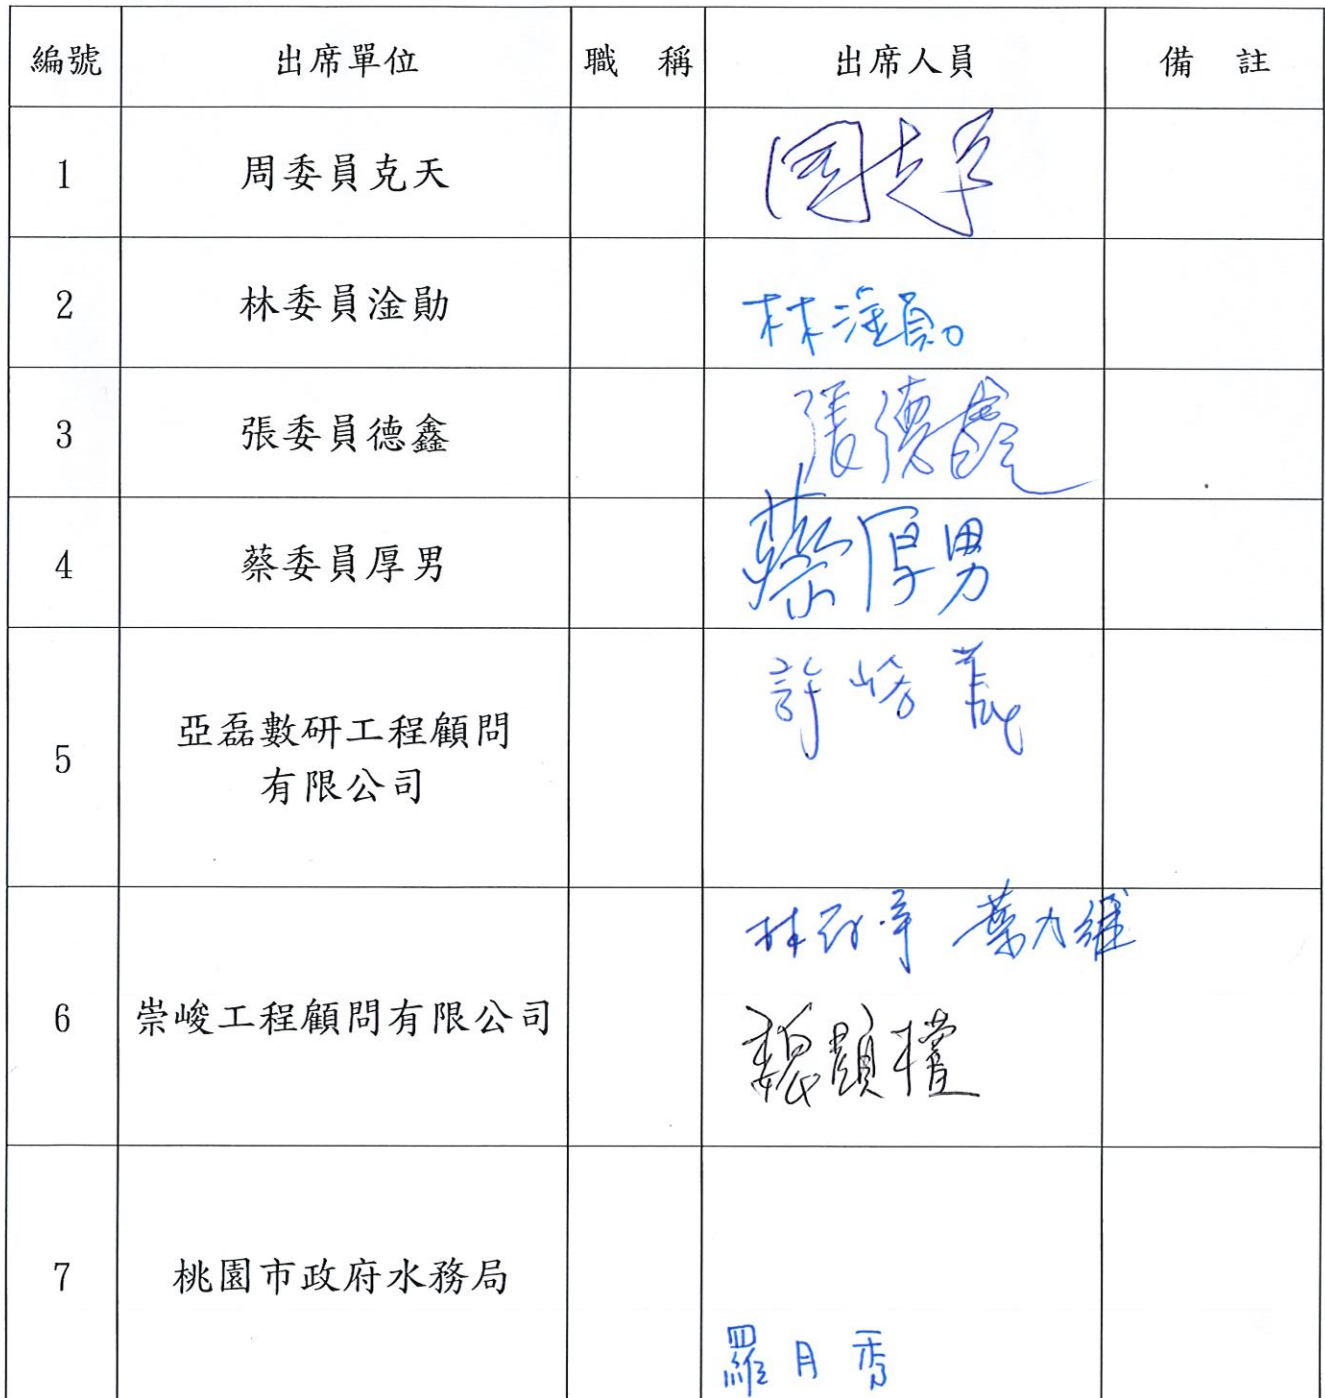 編號 出席單位 職 稱 出席人員 備 註
1 周委員克天 周克天
2 林委員淦勛 林淦勛
3 張委員德鑫 張德鑫
4 蔡委員厚男 蔡厚男
5 亞磊數研工程顧問 許
有限公司
林 葉力維
6 崇峻工程顧問有限公司 魏顯權
7 桃園市政府水務局
羅月秀